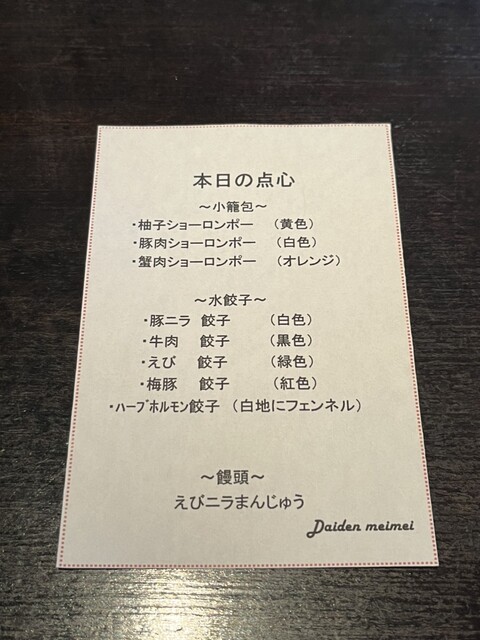 本日の点心
～小籠包～
・柚子ショーロンポー （黄色）
・豚肉ショーロンポー （白色）
・蟹肉ショーロンポー （オレンジ）
～水餃子～
・豚ニラ 餃子 （白色）
・牛肉 餃子 （黒色）
・えび 餃子 （緑色）
・梅豚 餃子 （紅色）
・ハーブホルモン餃子 （白地にフェンネル）
～饅頭～
えびニラまんじゅう
Daiden meimei